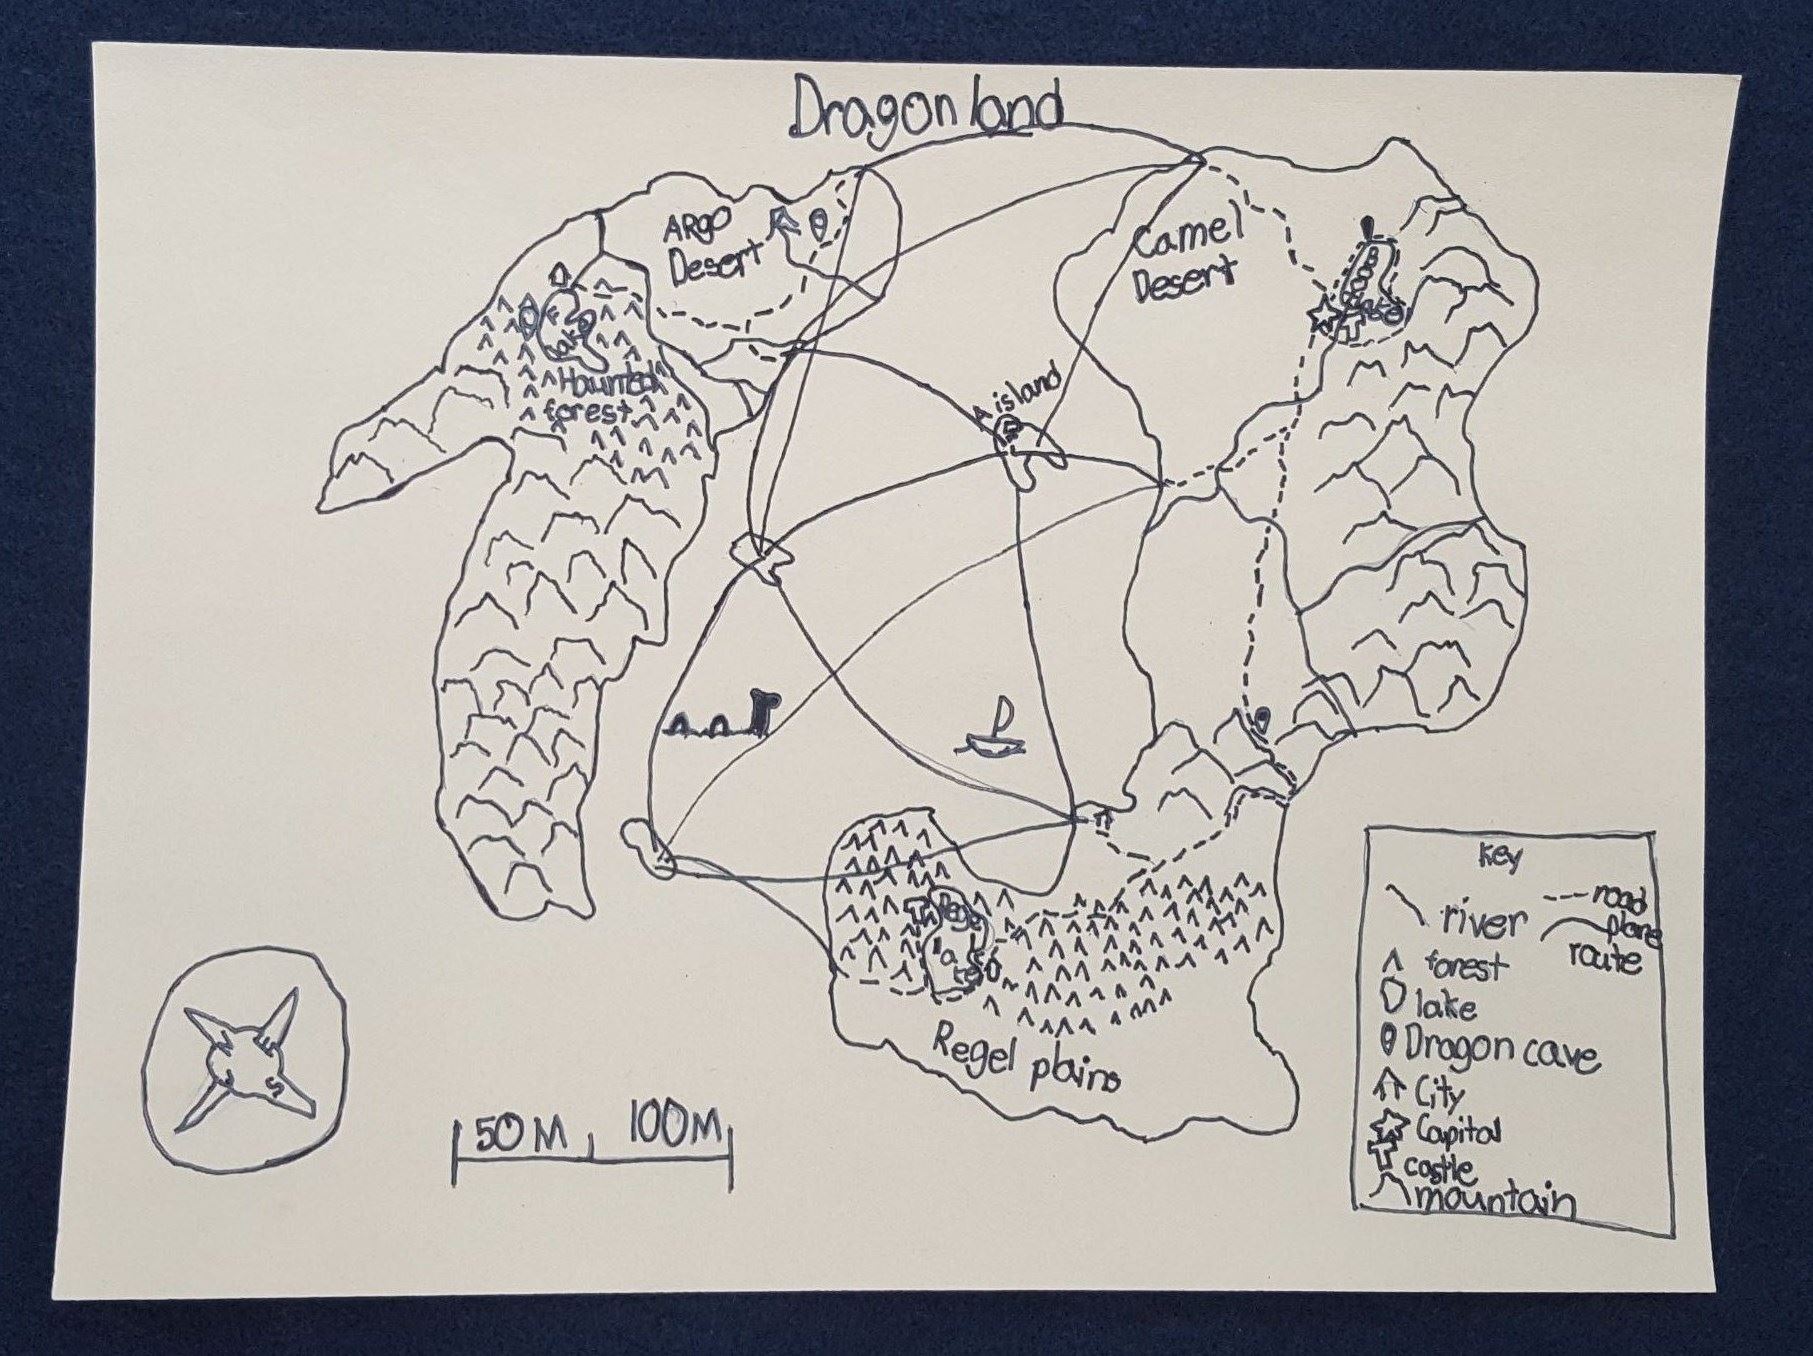 Dragon land
ARgo
Desert
Camel
Desert
Lake
Haunted
forest
A island
Regel
lake
Regel plains
50 M 100M
Key
river
road
plane
route
forest
lake
Dragon cave
City
Capital
castle
mountain